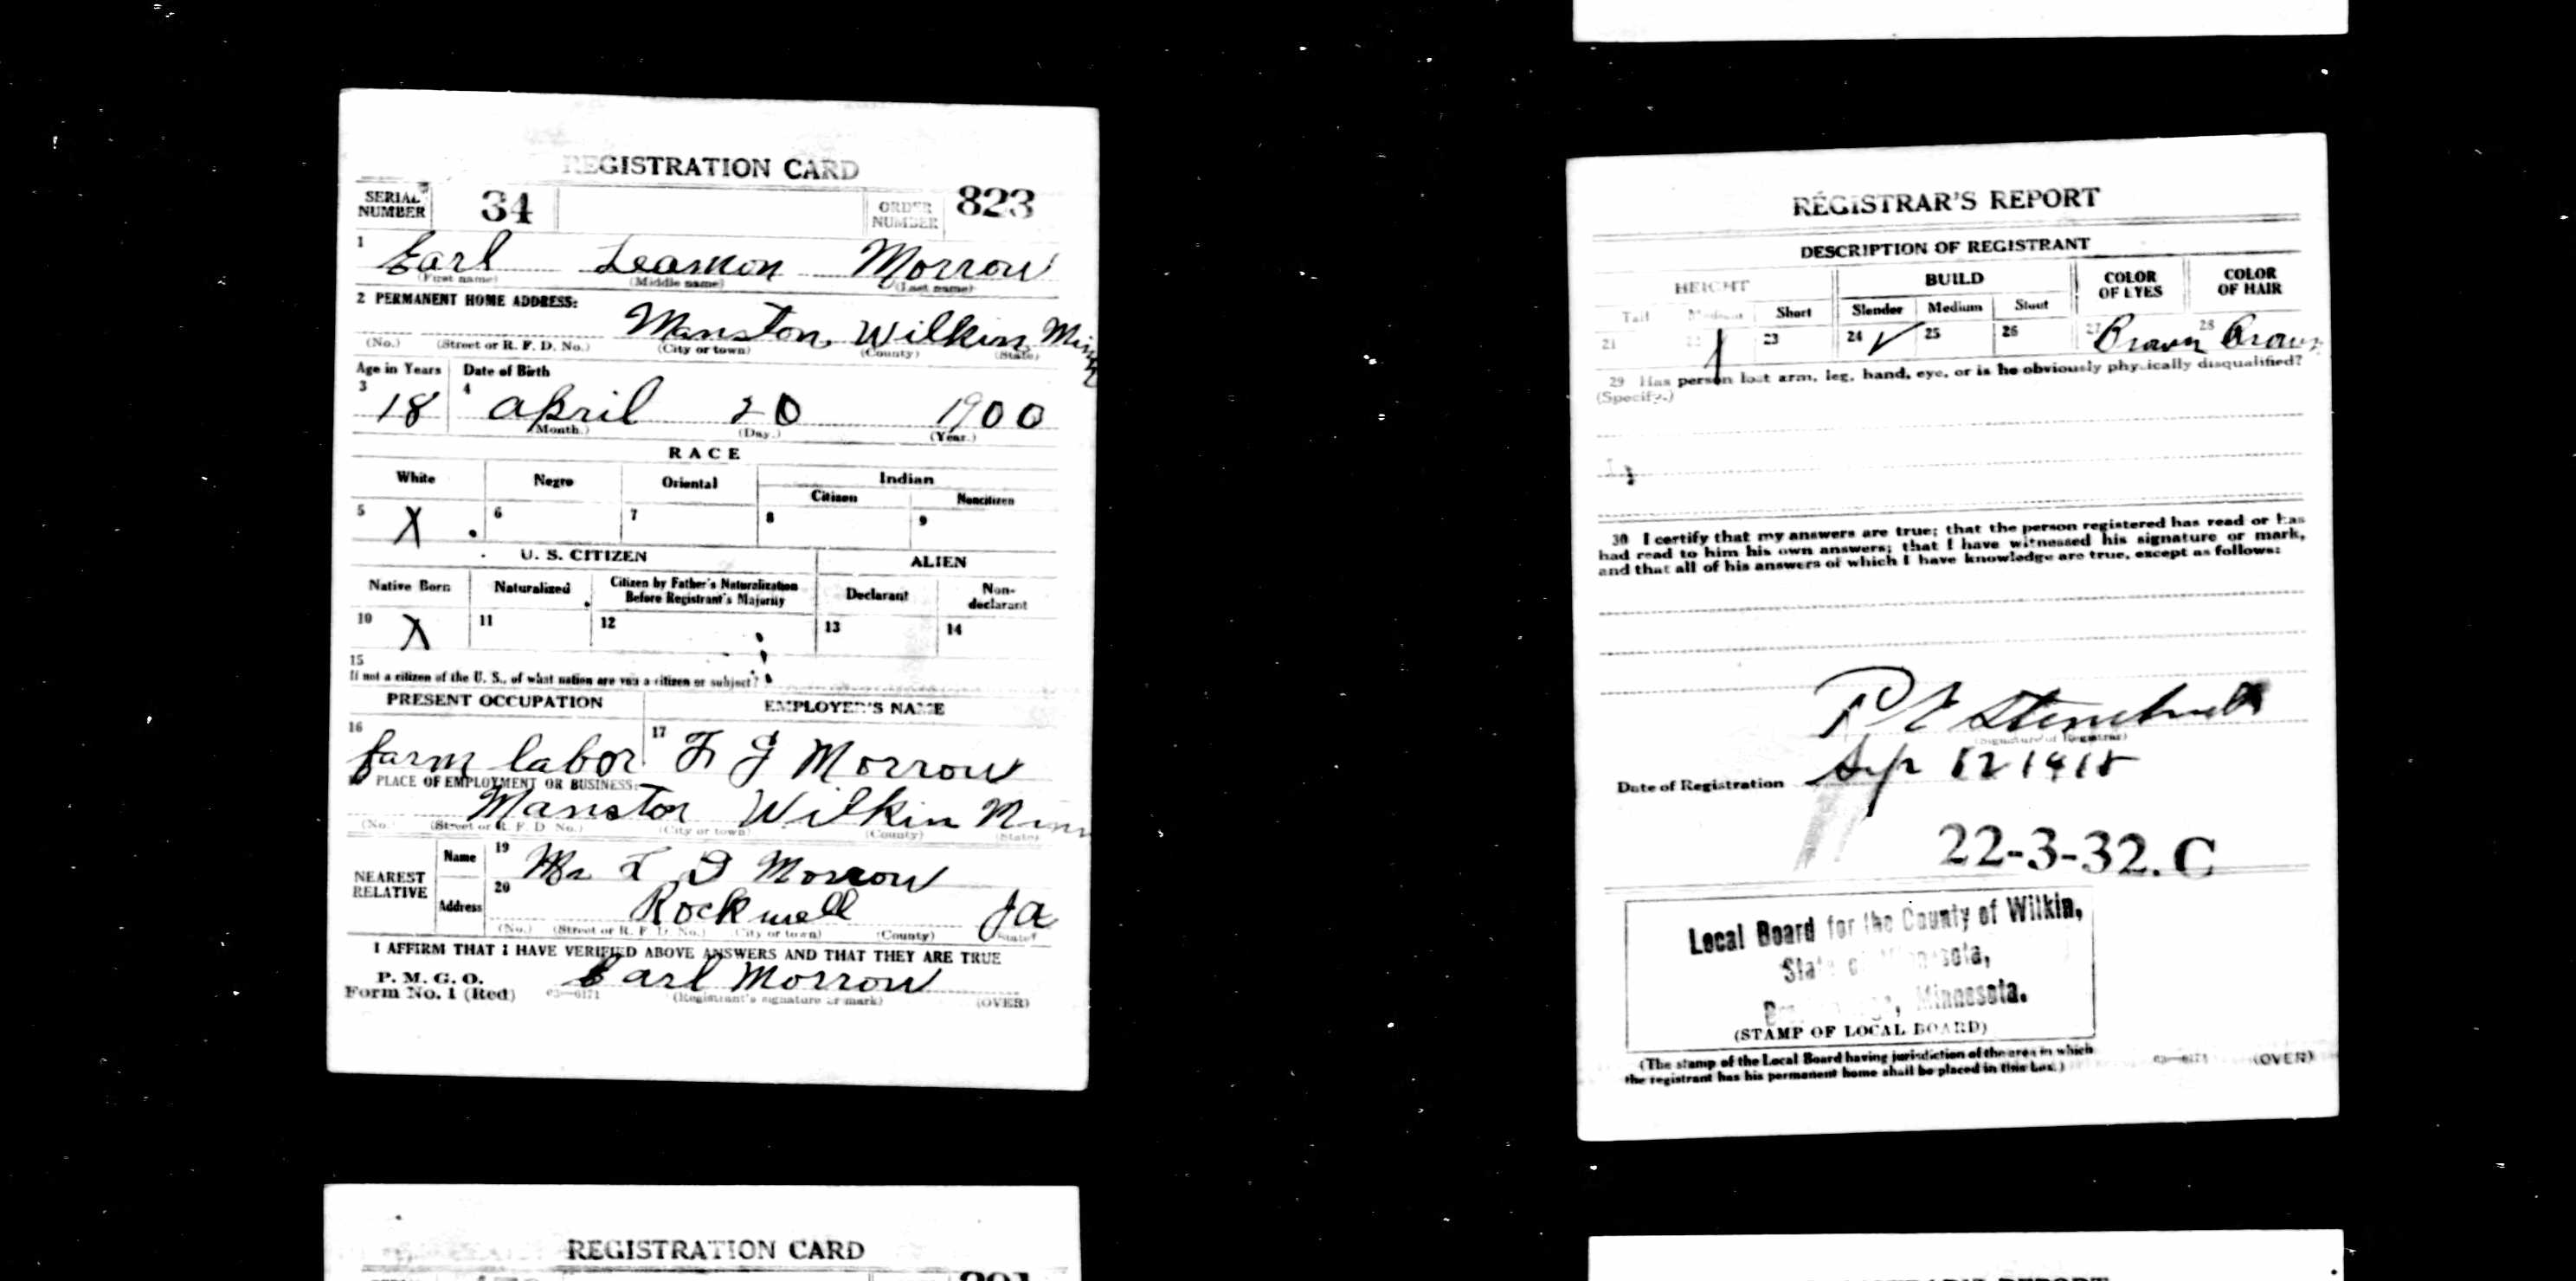 REGISTRATION CARD
SERIAL NUMBER 34 ORDER NUMBER 823
1 Earl Leamon Morrow
(First name) (Middle name) (Last name)
2 PERMANENT HOME ADDRESS:
Manston, Wilkin, Minn
(No.) (Street or R. F. D. No.) (City or town) (County) (State)
Age in Years Date of Birth
3 18 4 april 20 1900
(Month.) (Day.) (Year.)
RACE
White Negro Oriental Indian
Citizen Noncitizen
5 X 6 7 8 9
U. S. CITIZEN ALIEN
Native Born Naturalized Citizen by Father's Naturalization Before Registrant's Majority Declarant Non-declarant
10 X 11 12 13 14
15
If not a citizen of the U. S., of what nation are you a citizen or subject?
PRESENT OCCUPATION EMPLOYER'S NAME
16 farm labor 17 F G Morrow
PLACE OF EMPLOYMENT OR BUSINESS:
Manston Wilkin Minn
(No.) (Street or R. F. D. No.) (City or town) (County) (State)
NEAREST RELATIVE Name 19 Morrow
Address 20 Rockwell Ia
(No.) (Street or R. F. D. No.) (City or town) (County) (State)
I AFFIRM THAT I HAVE VERIFIED ABOVE ANSWERS AND THAT THEY ARE TRUE
P. M. G. O.
Form No. 1 (Red) 03—6171 Earl Morrow
(Registrant's signature or mark) (OVER)
REGISTRAR'S REPORT
DESCRIPTION OF REGISTRANT
HEIGHT BUILD COLOR OF EYES COLOR OF HAIR
Tall Medium Short Slender Medium Stout
21 22 23 24 ✓ 25 26 27 Brown 28 Brown
29 Has person lost arm, leg, hand, eye, or is he obviously physically disqualified?
(Specify.)
30 I certify that my answers are true; that the person registered has read or has
had read to him his own answers; that I have witnessed his signature or mark,
and that all of his answers of which I have knowledge are true, except as follows:
(Signature of Registrar)
Date of Registration Sep 12 1918
22-3-32. C
Local Board for the County of Wilkin,
State of Minnesota,
Minnesota.
(STAMP OF LOCAL BOARD)
(The stamp of the Local Board having jurisdiction of the area in which
the registrant has his permanent home shall be placed in this box.)
03—6171 (OVER)
REGISTRATION CARD